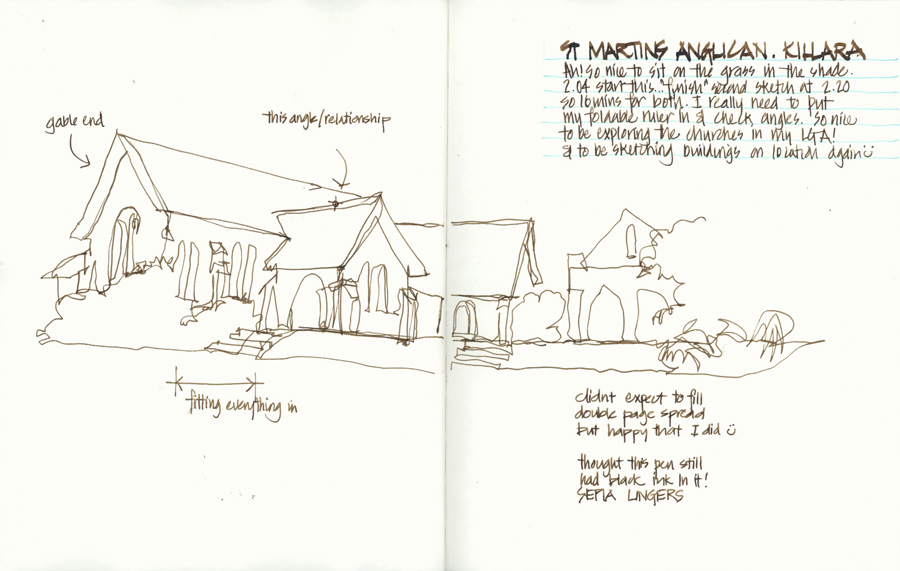 ST MARTINS ANGLICAN. KILLARA
Ah! so nice to sit on the grass in the shade.
2.04 start this... "finish" second sketch at 2.20
so 16 mins for both. I really need to put
my foldable ruler in & check angles. So nice
to be exploring the churches in my LGA!
& to be sketching buildings on location again
gable end
this angle/relationship
fitting everything in
didnt expect to fill
double page spread
but happy that I did
thought this pen still
had black ink in it!
SEPIA LINGERS